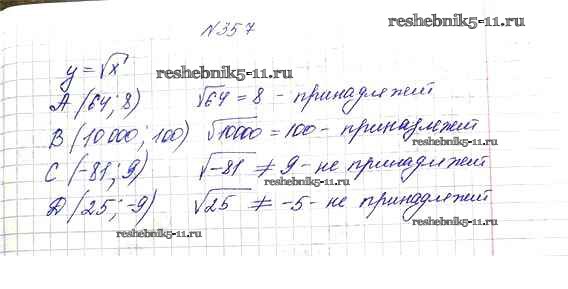 №357
reshebnik5-11.ru
y = √x
reshebnik5-11.ru
A (64; 8) √64 = 8 - принадлежит
B (10000; 100) √10000 = 100 - принадлежит
C (-81; 9) √-81 ≠ 9 - не принадлежит
reshebnik5-11.ru
D (25; -9) √25 ≠ -5 - не принадлежит
reshebnik5-11.ru